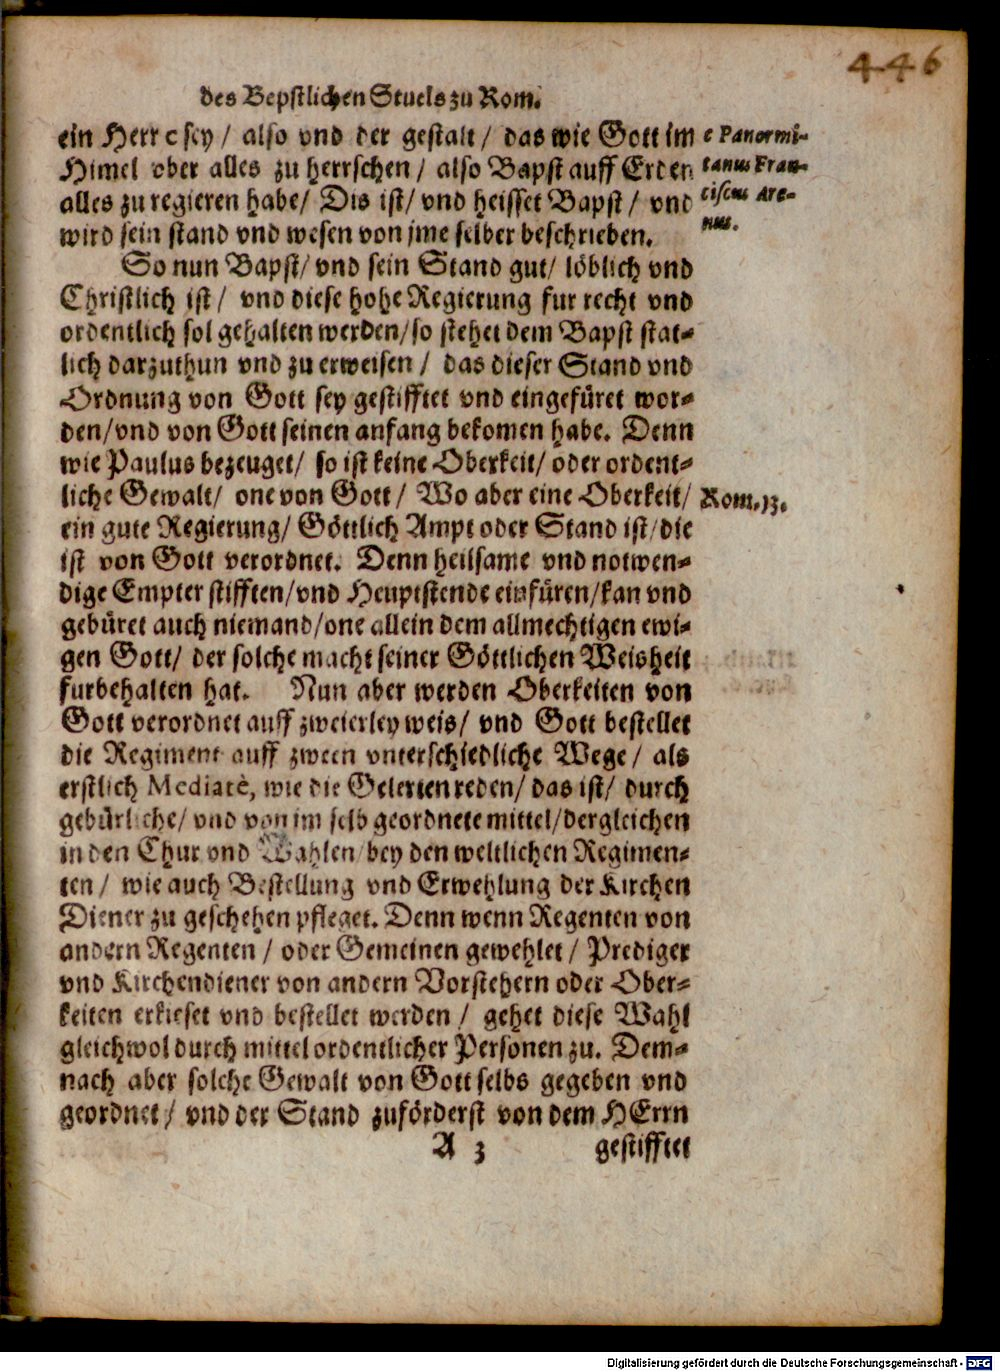 446
des Bepstlichen Stuels zu Rom.
ein Herr c sey / also vnd der gestalt / das wie Gott im
Himel vber alles zu herrschen / also Bapst auff Erden
alles zu regieren habe / Dis ist / vnd heisset Bapst / vnd
wird sein stand vnd wesen von jme selber beschrieben.
c Panormi-
tanus Fran-
ciscus Are-
nus.
So nun Bapst / vnd sein Stand gut / löblich vnd
Christlich ist / vnd diese hohe Regierung fur recht vnd
ordentlich sol gehalten werden / so stehet dem Bapst stat-
lich darzuthun vnd zu erweisen / das dieser Stand vnd
Ordnung von Gott sey gestifftet vnd eingefüret wor-
den / vnd von Gott seinen anfang bekomen habe. Denn
wie Paulus bezeuget / so ist keine Oberkeit / oder ordent-
liche Gewalt / one von Gott / Wo aber eine Oberkeit /
Rom. 13.
ein gute Regierung / Göttlich Ampt oder Stand ist / die
ist von Gott verordnet. Denn heilsame vnd notwen-
dige Empter stifften / vnd Heuptstende einfüren / kan vnd
gebüret auch niemand / one allein dem allmechtigen ewi-
gen Gott / der solche macht seiner Göttlichen Weisheit
furbehalten hat. Nun aber werden Oberkeiten von
Gott verordnet auff zweierley weis / vnd Gott bestellet
die Regiment auff zween vnterschiedliche Wege / als
erstlich Mediatè, wie die Gelerten reden / das ist / durch
gebürliche / vnd von im selb geordnete mittel / dergleichen
in den Chur vnd Wahlen bey den weltlichen Regimen-
ten / wie auch Bestellung vnd Erwehlung der Kirchen
Diener zu geschehen pfleget. Denn wenn Regenten von
andern Regenten / oder Gemeinen gewehlet / Prediger
vnd Kirchendiener von andern Vorstehern oder Ober-
keiten erkieset vnd bestellet werden / gehet diese Wahl
gleichwol durch mittel ordentlicher Personen zu. Dem-
nach aber solche Gewalt von Gott selbs gegeben vnd
geordnet / vnd der Stand zuförderst von dem HErrn
A 3 gestifftet
Digitalisierung gefördert durch die Deutsche Forschungsgemeinschaft - DFG